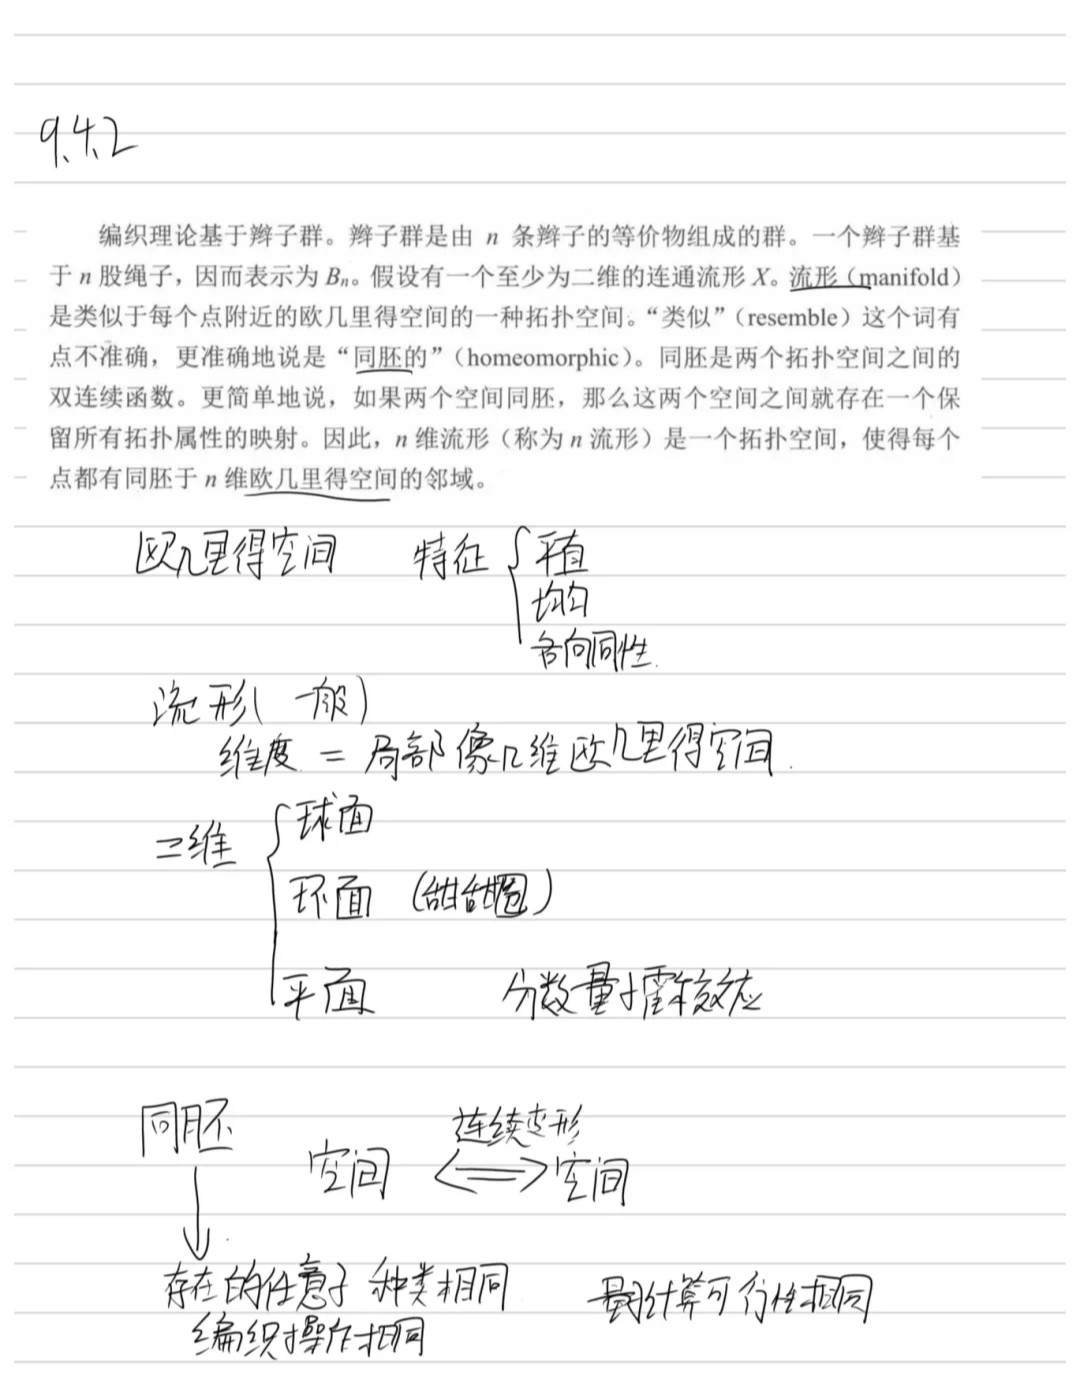 9.4.2
编织理论基于辫子群。辫子群是由 n 条辫子的等价物组成的群。一个辫子群基
于 n 股绳子，因而表示为 Bn。假设有一个至少为二维的连通流形 X。流形（manifold）
是类似于每个点附近的欧几里得空间的一种拓扑空间。“类似”（resemble）这个词有
点不准确，更准确地说是“同胚的”（homeomorphic）。同胚是两个拓扑空间之间的
双连续函数。更简单地说，如果两个空间同胚，那么这两个空间之间就存在一个保
留所有拓扑属性的映射。因此，n 维流形（称为 n 流形）是一个拓扑空间，使得每个
点都有同胚于 n 维欧几里得空间的邻域。
欧几里得空间 特征 平直
均匀
各向同性
流形(一般)
维度 = 局部像几维欧几里得空间.
二维 球面
环面 (甜甜圈)
平面 分数量子霍尔效应
同胚 连续变形
空间 <=> 空间
存在的任意子种类相同 量子计算可行性相同
编织操作相同